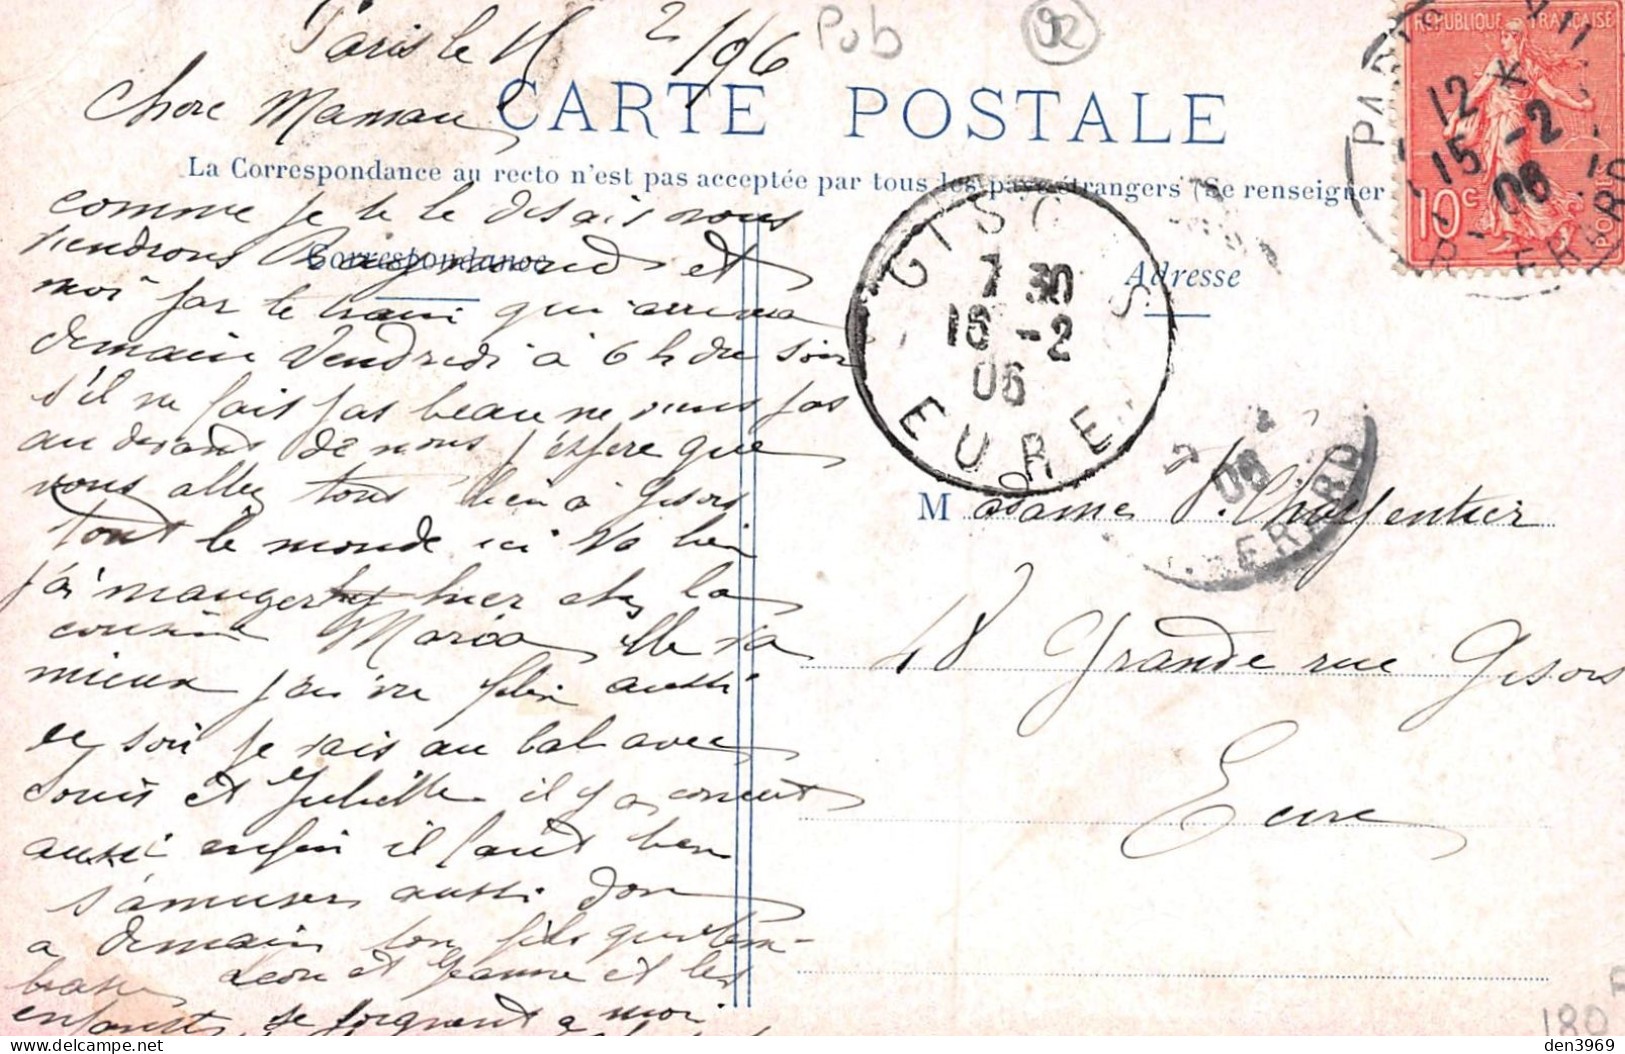 Paris le 15 2/06
Pub
92
Chère Maman
CARTE POSTALE
La Correspondance au recto n'est pas acceptée par tous les pays étrangers (Se renseigner
RÉPUBLIQUE FRANÇAISE
10c
POSTES
PARIS
12 *
15 -2
06
comme je te le disais nous
viendrons Raymond et
Correspondance
Adresse
moi par le train qui arrivera
demain Vendredi à 6 h du soir
s'il ne fait pas beau ne viens pas
au devant de nous j'espère que
vous allez tous bien à Gisors
tout le monde ici va bien
j'ai manger hier chez la
cousine Maria elle va
mieux j'ai vu Félix aussi
ce soir je vais au bal avec
Louis et Juliette il y a concert
aussi enfin il faut bien
s'amuser aussi donc
a demain ton fils qui t'em-
brasse Léon et Jeanne et les
enfants se joignent a moi
GISORS
7 30
16 -2
06
EURE
06
FERRARD
Madame P. Charpentier
48 Grande rue Gisors
Eure
180
den3969